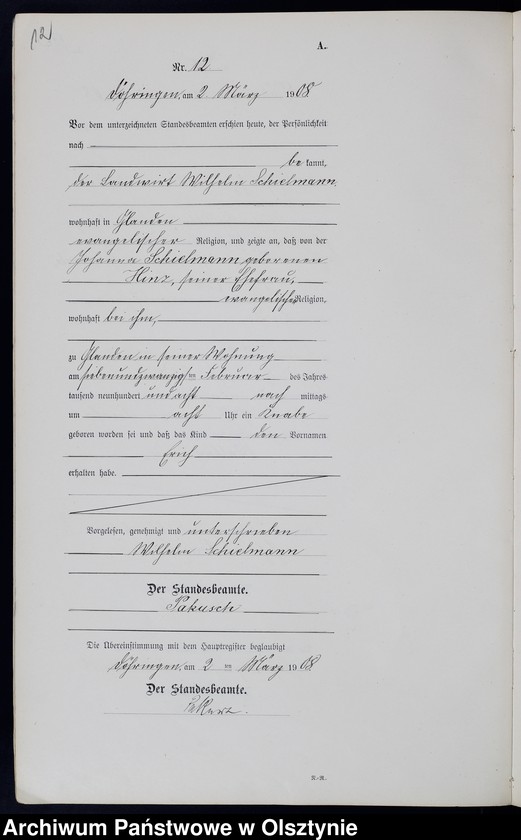 12
A.
Nr. 12
Döhringen, am 2. März 1908
Vor dem unterzeichneten Standesbeamten erschien heute, der Persönlichkeit
nach
be kannt,
der Landwirt Wilhelm Schielmann,
wohnhaft in Glanden
evangelischer Religion, und zeigte an, daß von der
Johanna Schielmann geborenen
Hinz, seiner Ehefrau,
evangelischer Religion,
wohnhaft bei ihm,
zu Glanden in seiner Wohnung
am siebenundzwanzigsten Februar des Jahres
tausend neunhundert und acht nach mittags
um acht Uhr ein Knabe
geboren worden sei und daß das Kind den Vornamen
Erich
erhalten habe.
Vorgelesen, genehmigt und unterschrieben
Wilhelm Schielmann
Der Standesbeamte.
Pakusch
Die Übereinstimmung mit dem Hauptregister beglaubigt
Döhringen, am 2 ten März 1908
Der Standesbeamte.
R.-R.
Archiwum Państwowe w Olsztynie